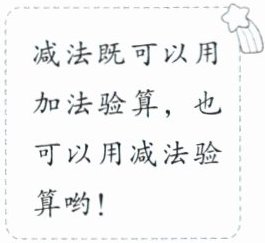 减法既可以用
加法验算，也
可以用减法验
算哟！